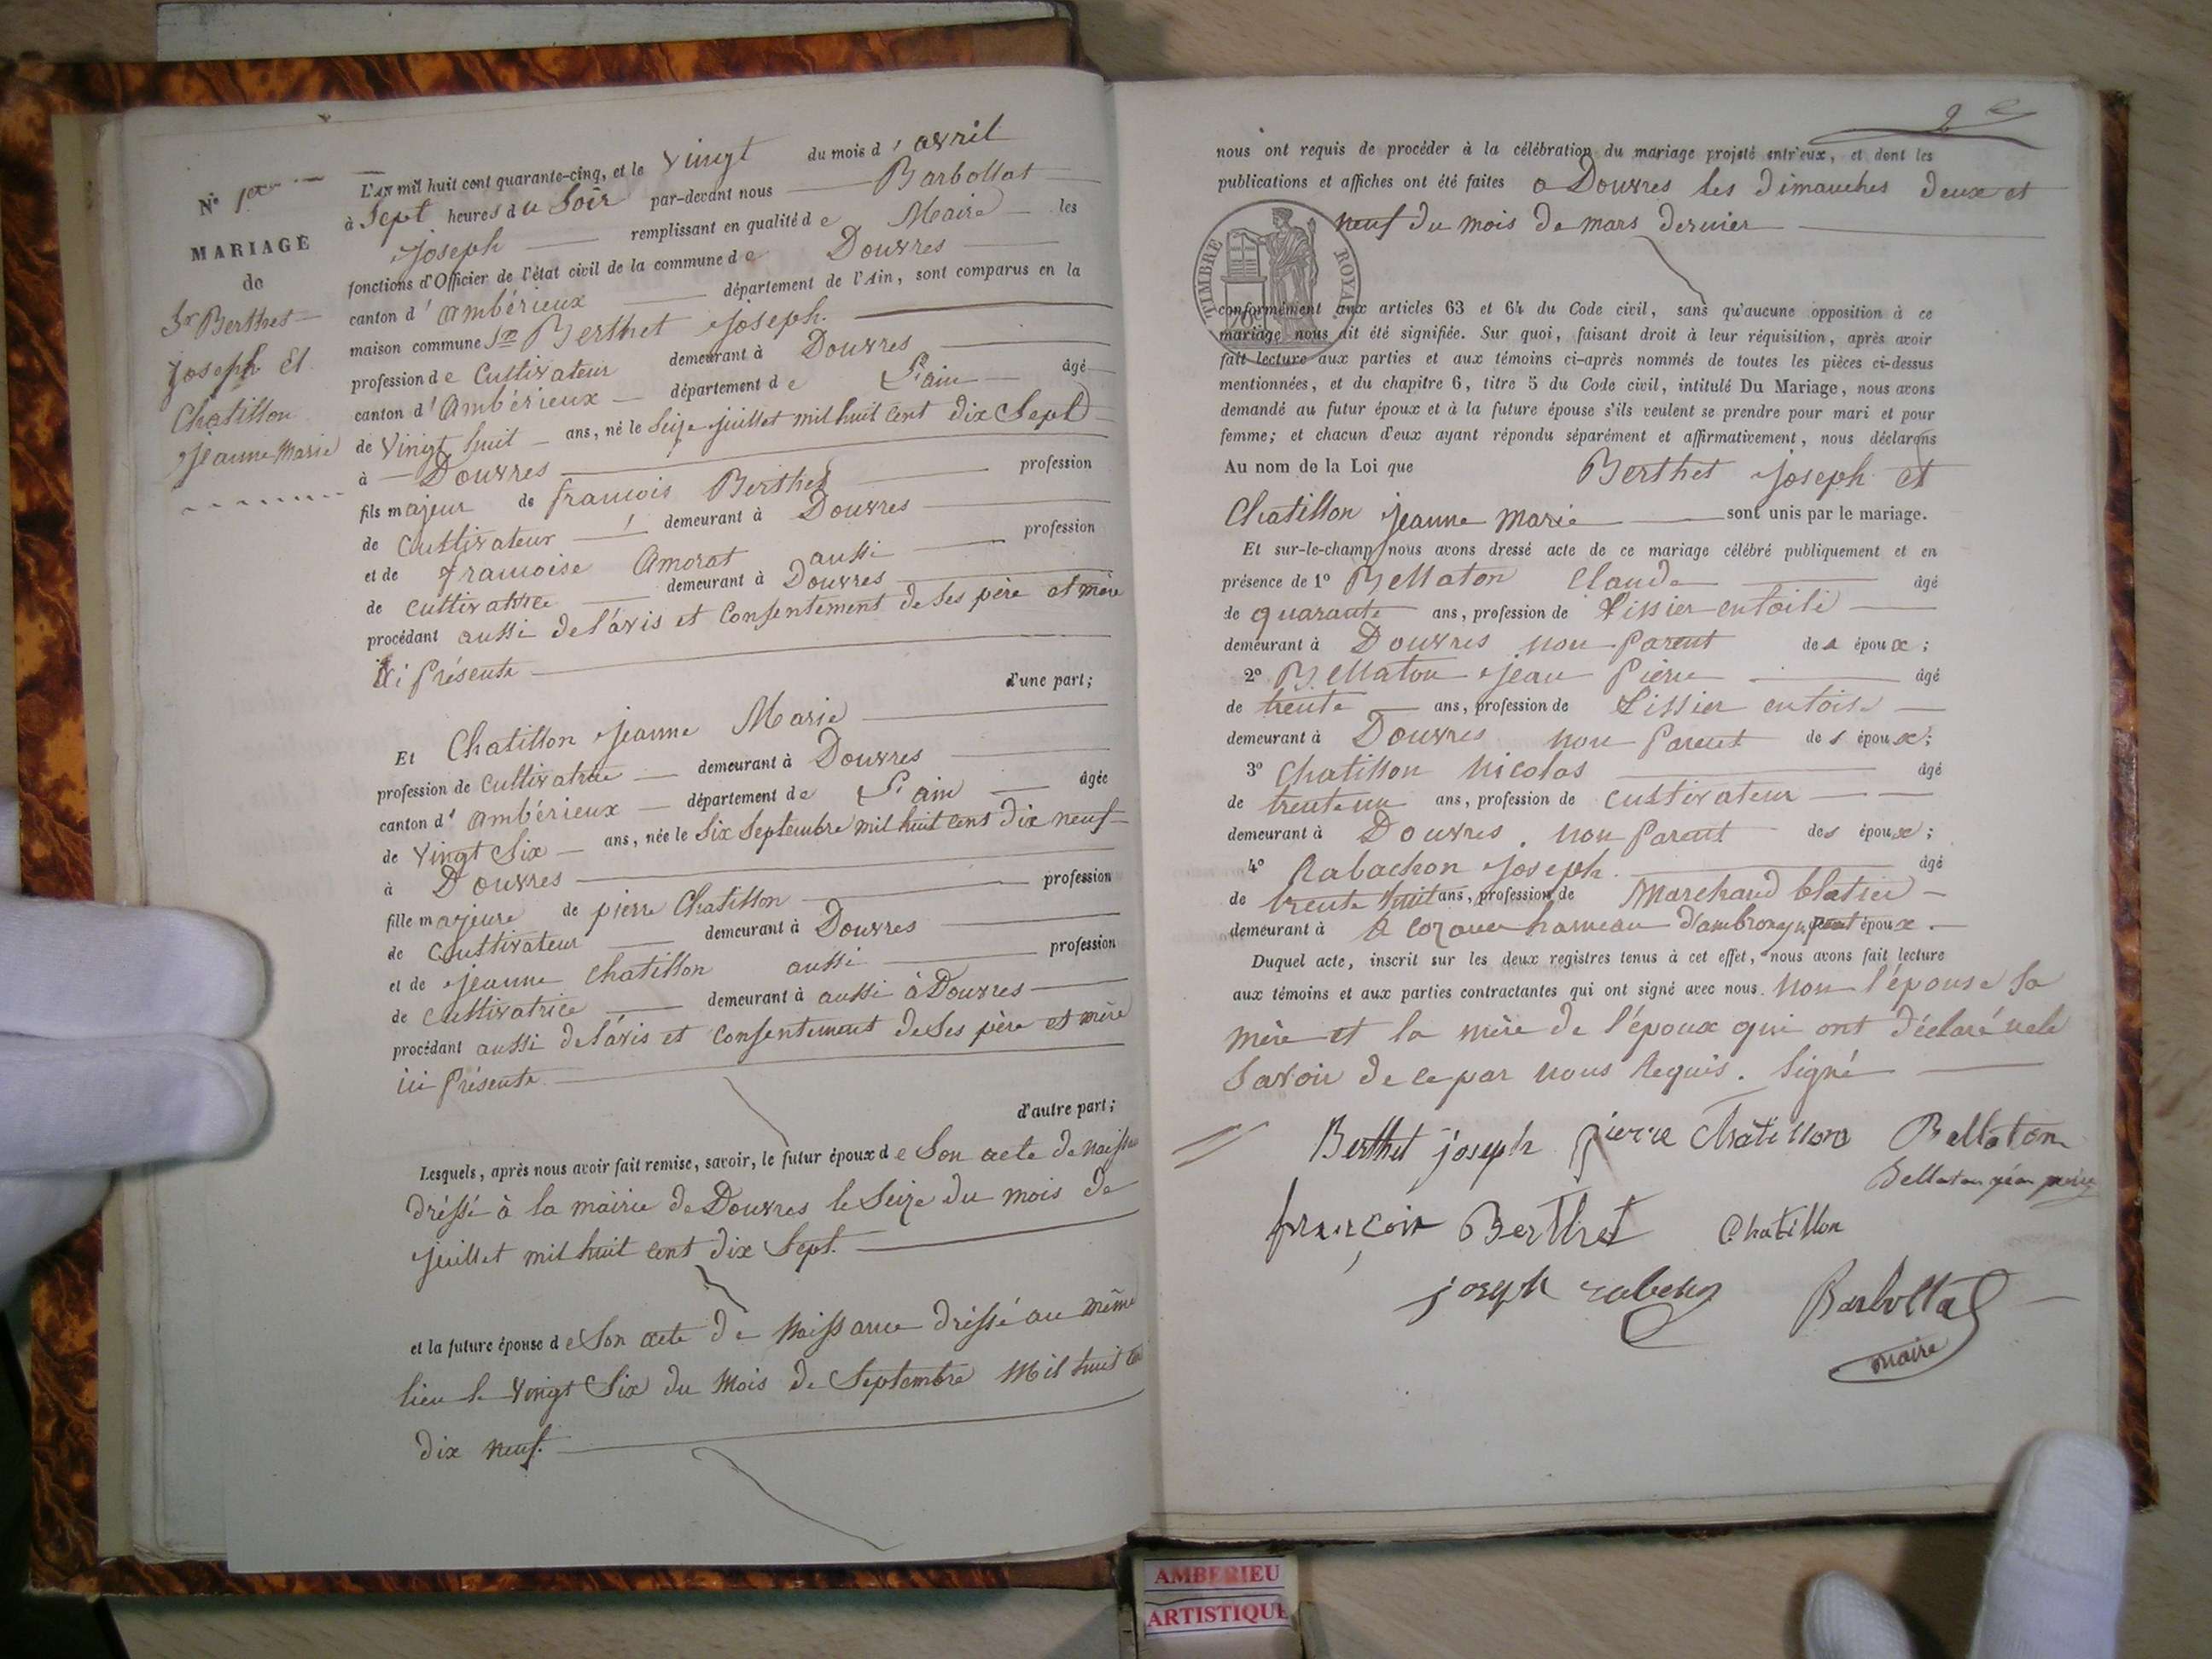 N° 1er
MARIAGE
de
Sr Berthet
Joseph Et
Chatillon
Jeanne Marie
L'AN mil huit cent quarante-cinq, et le vingt du mois d'avril
à Sept heures du Soir par-devant nous Barbollat
Joseph remplissant en qualité de Maire les
fonctions d'Officier de l'état civil de la commune de Douvres
canton d'ambérieux département de l'Ain, sont comparus en la
maison commune Sr Berthet Joseph.
profession de Cultivateur demeurant à Douvres
canton d'Ambérieux département de L'ain âgé
de Vingt huit ans, né le Seize juillet mil huit Cent dix Sept
à Douvres
fils majeur de francois Berthet profession
de Cultivateur demeurant à Douvres
et de francoise Amorat aussi profession
de cultivatrice demeurant à Douvres
procédant aussi de l'avis et Consentement de Ses père et mère
ici Présente
d'une part;
Et Chatillon Jeanne Marie
profession de cultivatrice demeurant à Douvres
canton d'ambérieux département de L'ain âgée
de Vingt Six ans, née le Six Septembre mil huit cent dix neuf
à Douvres
fille majeure de pierre Chatillon profession
de Cultivateur demeurant à Douvres
et de Jeanne Chatillon aussi profession
de Cultivatrice demeurant à aussi à Douvres
procédant aussi de l'avis et Consentement de Ses père et mère
ici Présente
d'autre part;
Lesquels, après nous avoir fait remise, savoir, le futur époux de Son acte de naissa
dréssé à la mairie de Douvres le Seize du mois de
juillet mil huit cent dix Sept.
et la future épouse de Son acte de Naissance dréssé au même
lieu le Vingt Six du Mois de Septembre Mil huit
dix neuf.
2e
nous ont requis de procéder à la célébration du mariage projeté entr'eux, et dont les
publications et affiches ont été faites a Douvres les dimanches deux et
neuf du mois de mars dernier
TIMBRE ROYAL
conformément aux articles 63 et 64 du Code civil, sans qu'aucune opposition à ce
mariage nous ait été signifiée. Sur quoi, faisant droit à leur réquisition, après avoir
fait lecture aux parties et aux témoins ci-après nommés de toutes les pièces ci-dessus
mentionnées, et du chapitre 6, titre 5 du Code civil, intitulé Du Mariage, nous avons
demandé au futur époux et à la future épouse s'ils veulent se prendre pour mari et pour
femme; et chacun d'eux ayant répondu séparément et affirmativement, nous déclarons
Au nom de la Loi que Berthet Joseph et
Chatillon Jeanne Marie sont unis par le mariage.
Et sur-le-champ nous avons dressé acte de ce mariage célébré publiquement et en
présence de 1° Bellaton Claude âgé
de quarante ans, profession de Tissier en toile
demeurant à Douvres non Parent des époux;
2° Bellaton Jean Pierre âgé
de trente ans, profession de Tissier en toile
demeurant à Douvres non Parent des époux;
3° Chatillon Nicolas âgé
de trente un ans, profession de cultivateur
demeurant à Douvres, non Parent des époux;
4° Rabachon Joseph. âgé
de trente huit ans, profession de Marchand blatier
demeurant à hameau d'ambronay époux.
Duquel acte, inscrit sur les deux registres tenus à cet effet, nous avons fait lecture
aux témoins et aux parties contractantes qui ont signé avec nous. Non l'épouse Sa
mère et la mère de l'époux qui ont déclaré ne le
Savoir de ce par nous Requis. Signé
Berthet joseph pierre Chatillon Bellaton
Bellaton jean pierre
françois Berthet Chatillon
joseph Barbollat
maire
AMBERIEU
ARTISTIQUE